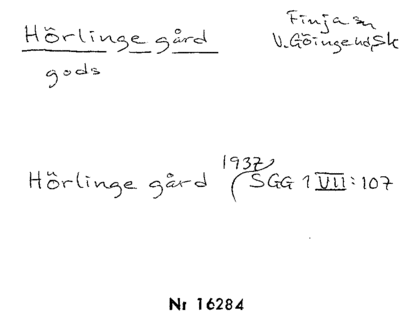 Hörlinge gård
gods
Finja sn
V. Göinge hd, Sk
1937
Hörlinge gård SGG 1 VII: 107
Nr 16284